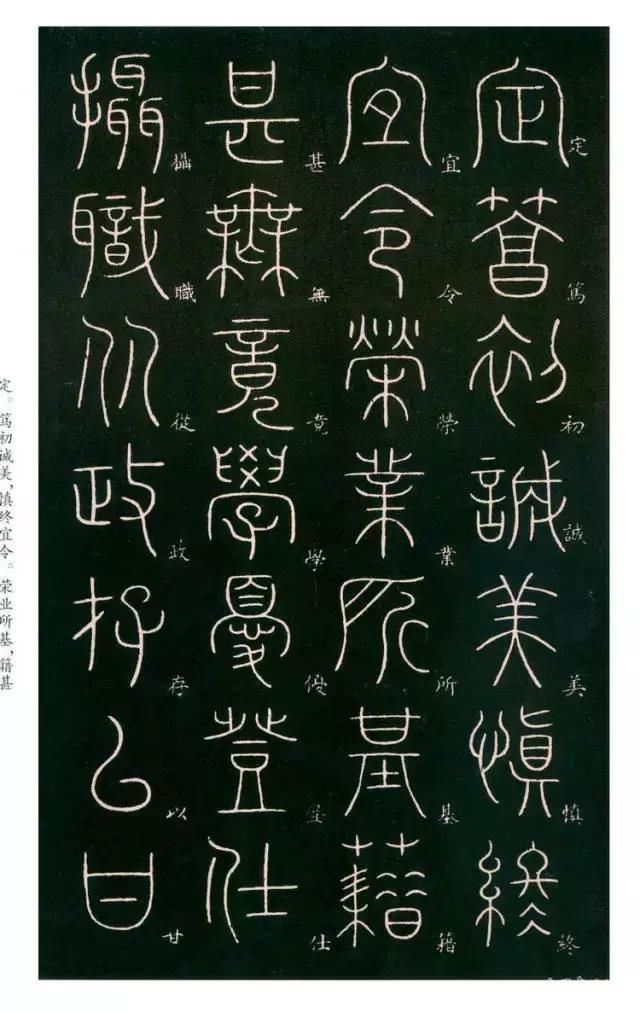 定篤初誠美慎終
宜令榮業所基籍
甚無竟學優登仕
攝職從政存以甘
定。笃初诚美，慎终宜令。荣业所基，籍甚